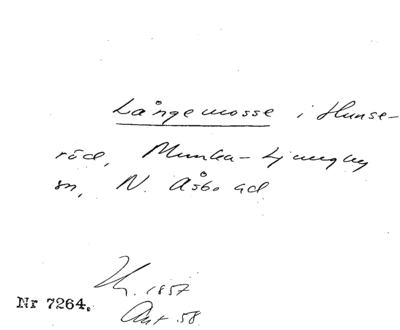 Långemosse i Hunse-
röd, Munka-Ljungby
sn, N. Åsbo hd
1857
Nr 7264.
58